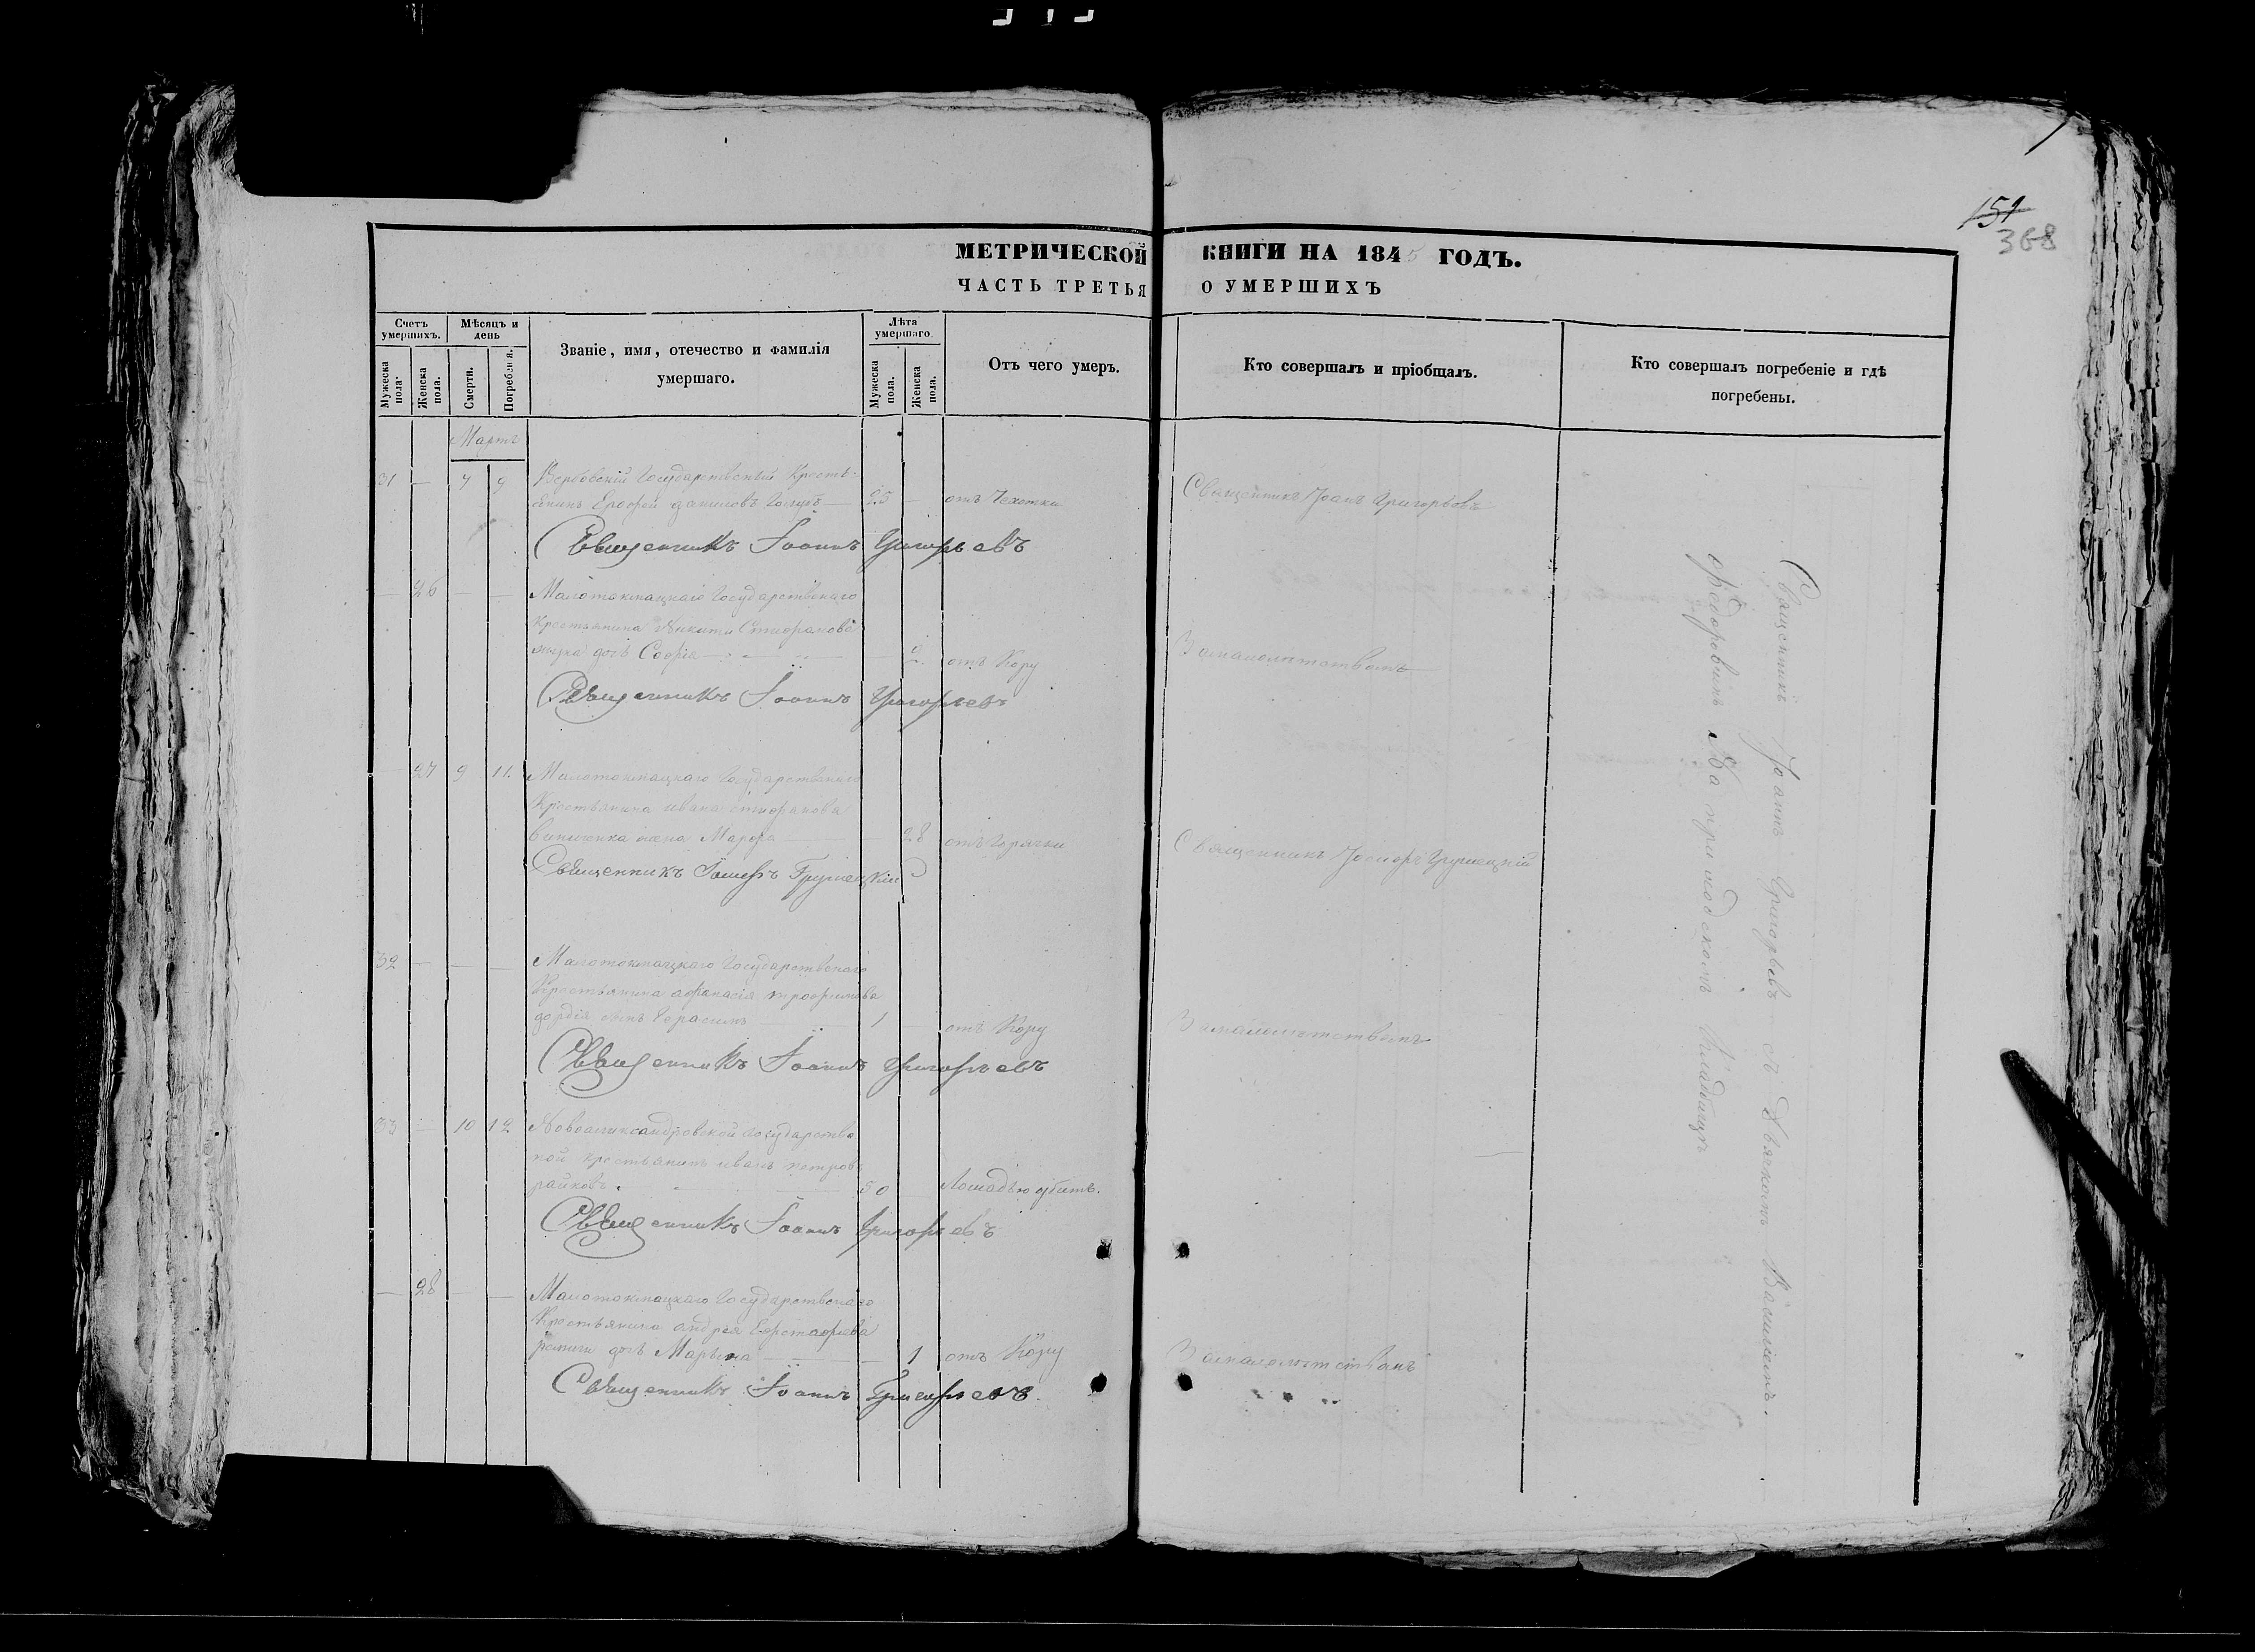 151
368
МЕТРИЧЕСКОЙ КНИГИ НА 1845 ГОДЪ.
ЧАСТЬ ТРЕТЬЯ О УМЕРШИХЪ
Счетъ умершихъ.
Мѣсяцъ и день
Званіе, имя, отечество и фамилія умершаго.
Лѣта умершаго.
Отъ чего умеръ.
Кто совершалъ и пріобщалъ.
Кто совершалъ погребеніе и гдѣ погребены.
Мужеска пола.
Женска пола.
Смерти.
Погребенія.
Мужеска пола.
Женска пола.
Мартъ
31 — 7 9 Вербовскій Государственный Кресть-
янинъ Ерофей даниловъ 25 — отъ Чехотки Священникъ Іоанъ Григорьевъ
Священникъ Іоаннъ Григорьевъ
— 26 — — Малотокмацкаго Государственаго
Крестьянина Никиты
дочь Софія — 2 отъ Кору Замалолѣтствомъ
Священникъ Іоаннъ Григорьевъ
— 27 9 11. Малотокмацкаго Государственаго
Крестьянина ивана
жена Марфа — 28 отъ Горячки Священникъ Іосифъ Грушецкій
Священникъ Іосифъ Грушецкій
32 — — — Малотокмацкаго Государственаго
Крестьянина афанасія трофимова
сынъ Герасимъ 1 — отъ Кору Замалолѣтствомъ
Священникъ Іоаннъ Григорьевъ
33 — 10 12 Новоалександровской государствен
ной крестьянинъ иванъ петровъ
райковъ. 50 Лошадью убитъ.
Священникъ Іоаннъ Григорьевъ
— 28 — — Малотокмацкаго Государственаго
Крестьянина андрея Евстафиева
дочь Марьяна — 1 отъ Кору Замалолѣтствомъ
Священникъ Іоаннъ Григорьевъ.
Священникъ Іоаннъ Григорьевъ съ Дьячкомъ Василіемъ
Федоровымъ На приходскомъ Кладбищѣ